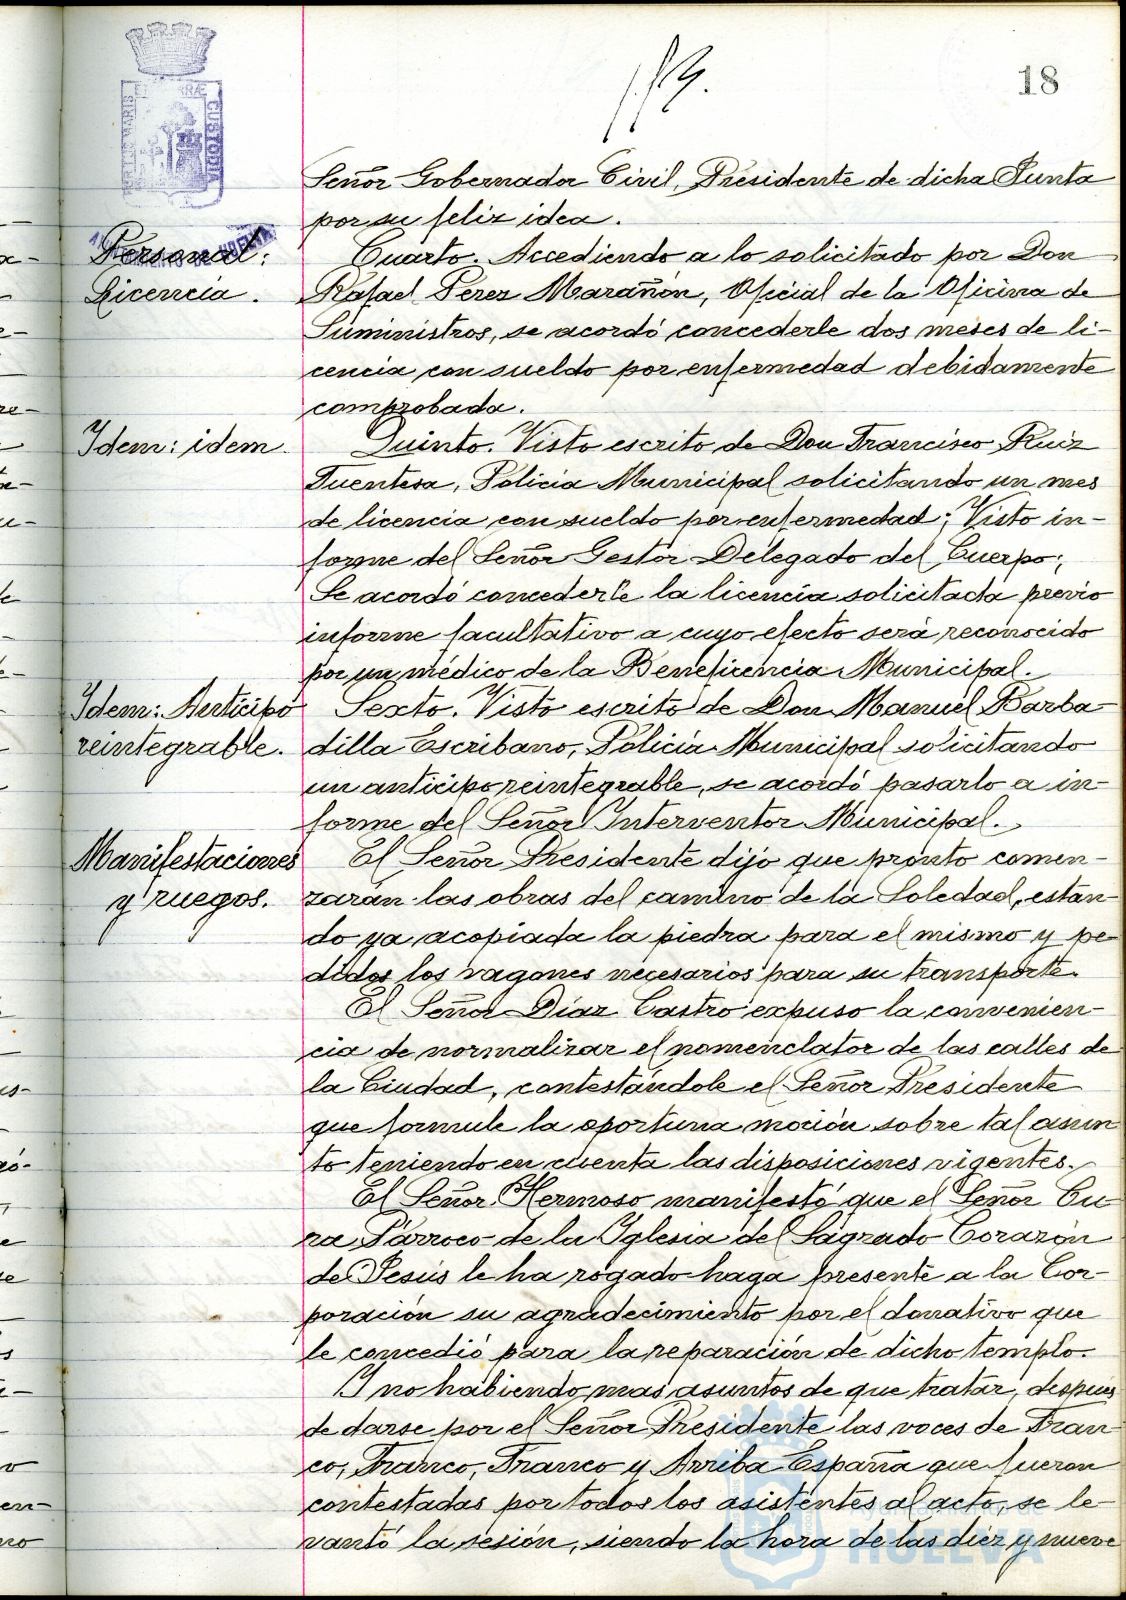 18
PORTUS MARIS ET TERRÆ CUSTODIA
AYUNTAMIENTO DE HUELVA
Señor Gobernador Civil, Presidente de dicha Junta
por su feliz idea.
Personal:
Licencia.
Cuarto. Accediendo a lo solicitado por Don
Rafael Perez Marañón, Oficial de la Oficina de
Suministros, se acordó concederle dos meses de li-
cencia con sueldo por enfermedad debidamente
comprobada.
Idem: idem.
Quinto. Visto escrito de Don Francisco Ruiz
Fuentesa, Policia Municipal solicitando un mes
de licencia con sueldo por enfermedad; Visto in-
forme del Señor Gestor Delegado del Cuerpo;
Se acordó concederle la licencia solicitada previo
informe facultativo a cuyo efecto será reconocido
por un médico de la Beneficencia Municipal.
Idem: Anticipo
reintegrable.
Sexto. Visto escrito de Don Manuel Barba-
dilla Escribano, Policía Municipal solicitando
un anticipo reintegrable, se acordó pasarlo a in-
forme del Señor Interventor Municipal.
Manifestaciones
y ruegos.
El Señor Presidente dijo que pronto comen-
zarán las obras del camino de la Soledad, estan-
do ya acopiada la piedra para el mismo y pe-
didos los vagones necesarios para su transporte.
El Señor Díaz Castro expuso la convenien-
cia de normalizar el nomenclator de las calles de
la Ciudad, contestándole el Señor Presidente
que formule la oportuna moción sobre tal asun
to teniendo en cuenta las disposiciones vigentes.
El Señor Hermoso manifestó que el Señor Cu
ra Párroco de la Iglesia del Sagrado Corazón
de Jesús le ha rogado haga presente a la Cor-
poración su agradecimiento por el donativo que
le concedió para la reparación de dicho templo.
Y no habiendo mas asuntos de que tratar, después
de darse por el Señor Presidente las voces de Fran-
co, Franco, Franco y Arriba España que fueron
contestadas por todos los asistentes al acto, se le-
vantó la sesión, siendo la hora de las diez y nueve
Ayuntamiento de
HUELVA